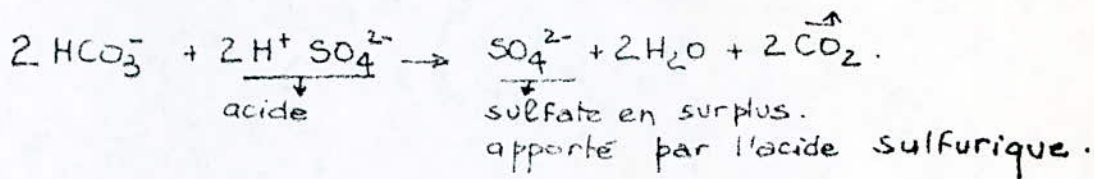 2 HCO₃⁻ + 2 H⁺ SO₄²⁻ → SO₄²⁻ + 2 H₂O + 2 CO₂ .
acide sulfate en surplus.
apporté par l'acide sulfurique.